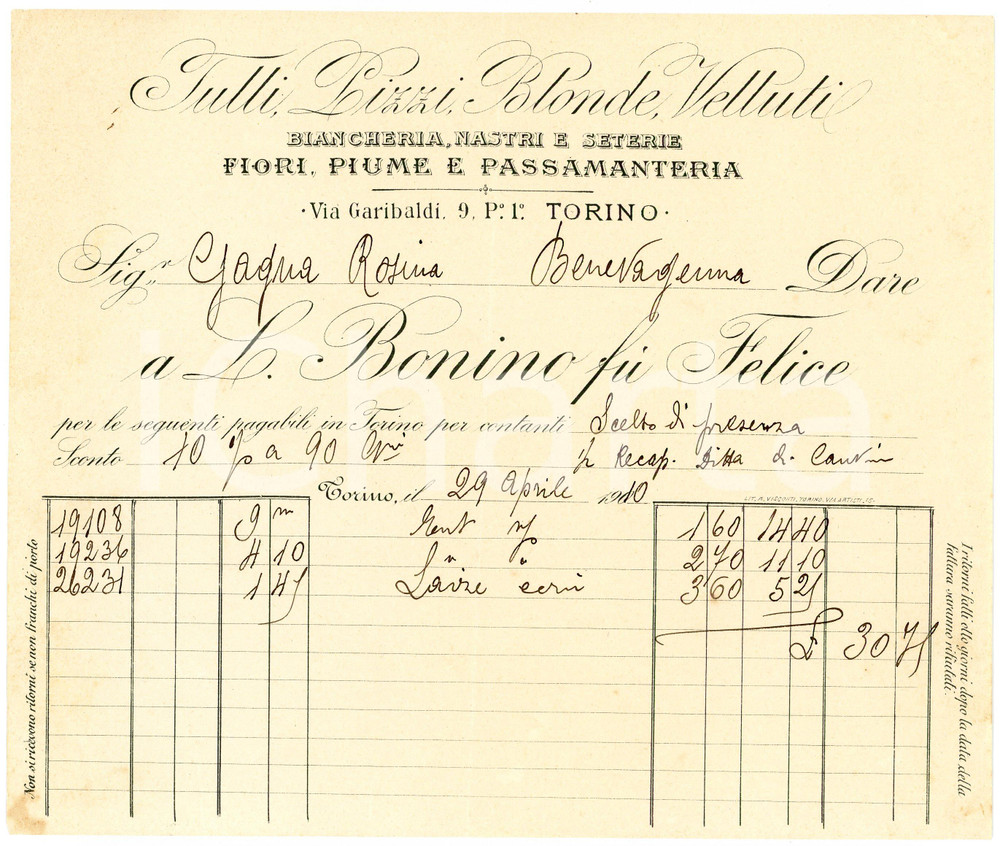 Tulli, Pizzi, Blonde, Velluti
BIANCHERIA, NASTRI E SETERIE
FIORI, PIUME E PASSAMANTERIA
Via Garibaldi, 9, P.º 1.º TORINO
Sig.r Gagna Rosina Benevagenna Dare
a L. Bonino fù Felice
per le seguenti pagabili in Torino per contanti Scelto di presenza
Sconto 10 % a 90 Gni Recap. Ditta
Torino, il 29 Aprile 1910
LIT. A. VISCONTI, TORINO, VIA ARTISTI, 15
19108 9 m 1 60 14 40
19236 4 10 " " 2 70 11 10
26231 1 45 Laize ecru 3 60 5 25
£ 30 75
Non si ricevono ritorni se non franchi di porto
I ritorni fatti otto giorni dopo la data della
fattura saranno rifiutati.